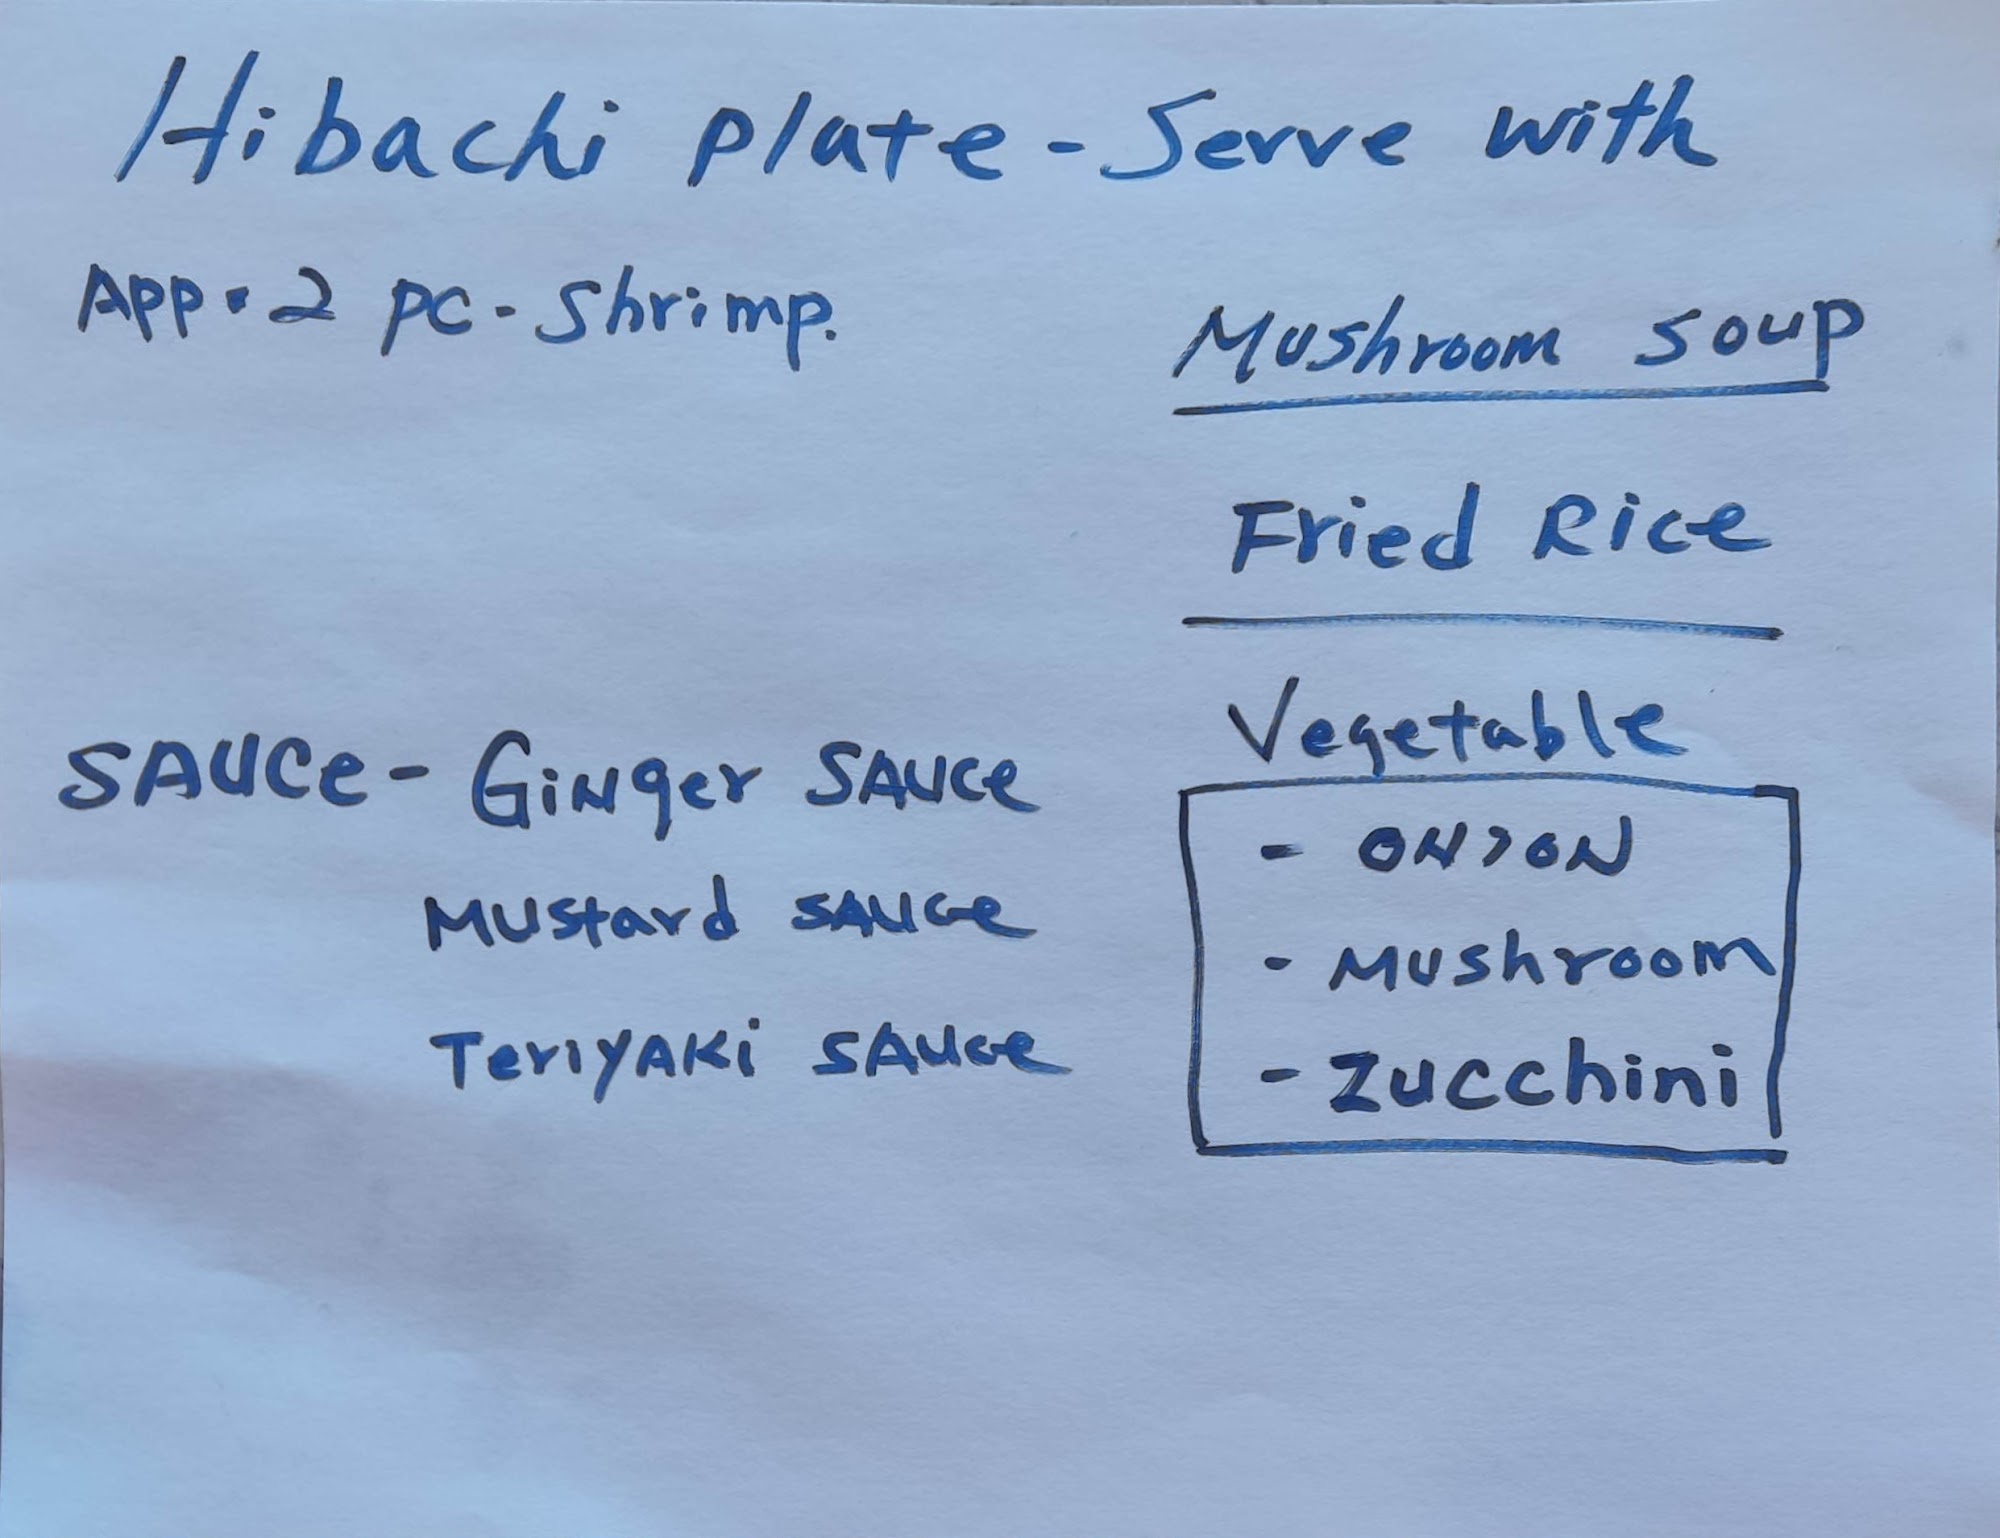 Hibachi plate - Serve with
App. 2 pc - Shrimp.
Mushroom soup
Fried Rice
Vegetable
- ONION
- Mushroom
- Zucchini
SAUCe - GiNger SAUCe
Mustard SAUCe
TeriyAKi SAUCe